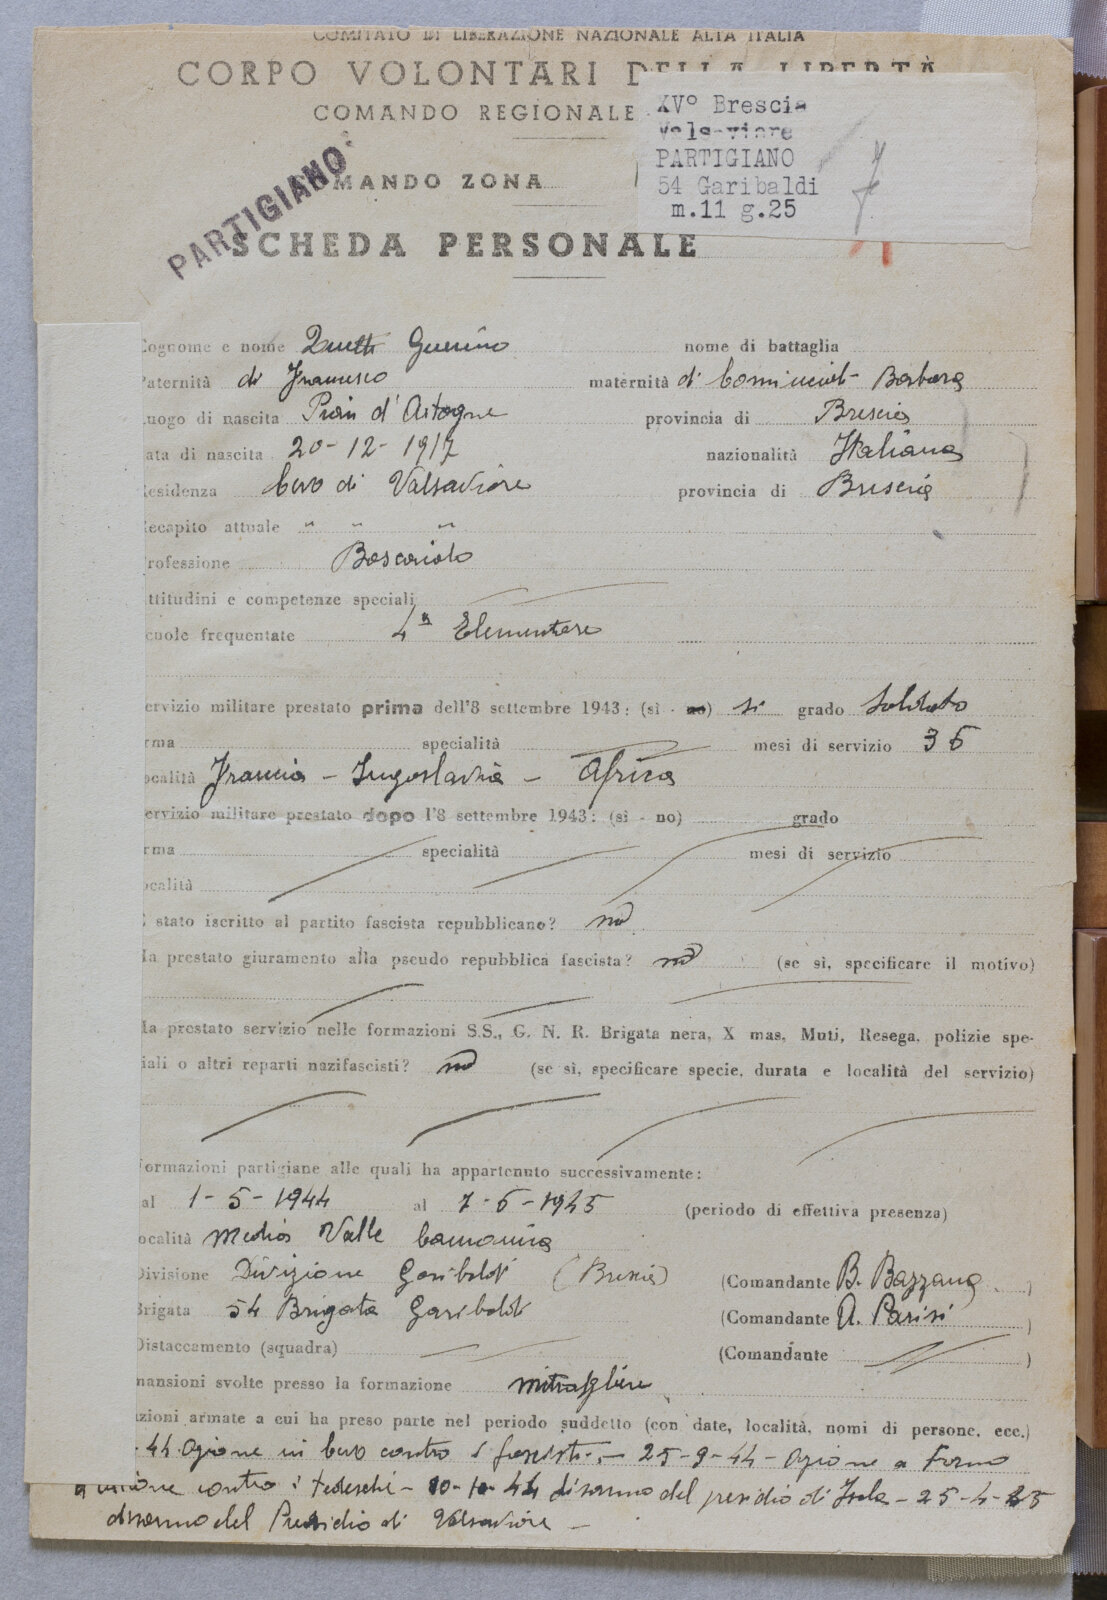 COMITATO DI LIBERAZIONE NAZIONALE ALTA ITALIA
CORPO VOLONTARI DELLA LIBERTÀ
COMANDO REGIONALE
XVº Brescia
Valsaviore
PARTIGIANO
54 Garibaldi
m.11 g.25
PARTIGIANO
COMANDO ZONA
SCHEDA PERSONALE
Cognome e nome Guerino nome di battaglia
Paternità di Francesco maternità di Barbara
Luogo di nascita Pian d'Artogne provincia di Brescia
ata di nascita 20-12-1917 nazionalità Italiana
Residenza Cevo di Valsaviore provincia di Brescia
Recapito attuale " " "
rofessione Boscaiolo
ttitudini e competenze speciali
cuole frequentate 4ª Elementare
ervizio militare prestato prima dell'8 settembre 1943: (sì - no) si grado Soldato
rma specialità mesi di servizio 36
ocalità Francia - Jugoslavia - Africa
ervizio militare prestato dopo l'8 settembre 1943: (sì - no) grado
rma specialità mesi di servizio
ocalità
È stato iscritto al partito fascista repubblicano? no
Ha prestato giuramento alla pseudo repubblica fascista? no (se sì, specificare il motivo)
Ha prestato servizio nelle formazioni S.S., G. N. R. Brigata nera, X mas, Muti, Resega, polizie spe-
iali o altri reparti nazifascisti? no (se sì, specificare specie, durata e località del servizio)
Formazioni partigiane alle quali ha appartenuto successivamente:
al 1-5-1944 al 7-5-1945 (periodo di effettiva presenza)
ocalità Media Valle Camonica
Divisione Divizione Garibaldi (Brescia) (Comandante B. Bazzana )
Brigata 54 Brigata Garibaldi (Comandante A. Parisi )
Distaccamento (squadra) (Comandante )
mansioni svolte presso la formazione mitragliere
zioni armate a cui ha preso parte nel periodo suddetto (con date, località, nomi di persone, ecc.)
-44 Azione in Cevo contro i fascisti - 25-9-44 - Azione a Forno
contro i tedeschi - 10-10-44 disarmo del presidio di Isola - 25-4-45
disarmo del Presidio di Valsaviore -